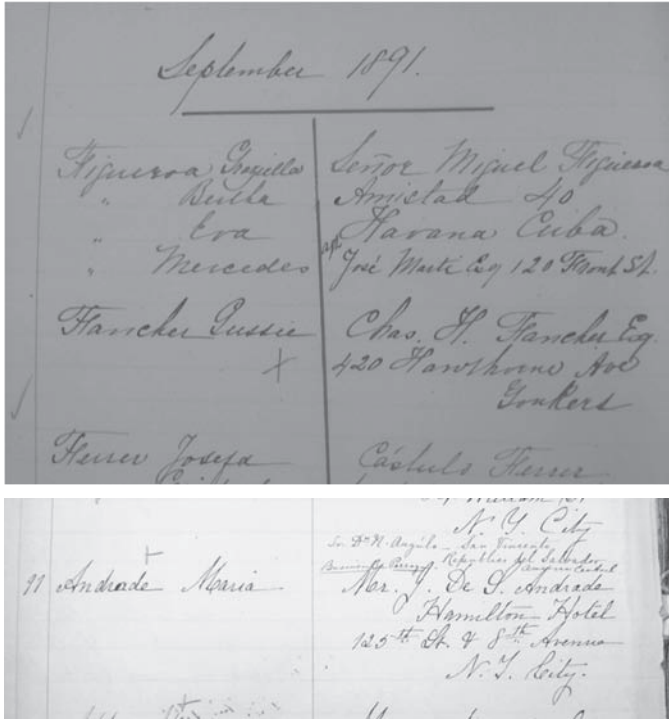 September 1891.
Figueroa Graziella Señor Miguel Figueroa
" Bertha Amistad 40
" Eva Havana Cuba.
" Mercedes José Marti Esq 120 Front St.
Fancher Gussie Chas. H. Fancher Esq.
420 Hawthorne Ave
Yonkers
Ferrer Josefa Cástulo Ferrer
William St.
N. Y. City
Sr. Dn N. Angulo San Vincente
Republica del Salvador
91 Andrade Maria Mr. J. De S. Andrade
Hamilton Hotel
125th St. & 8th Avenue
N. Y. City.